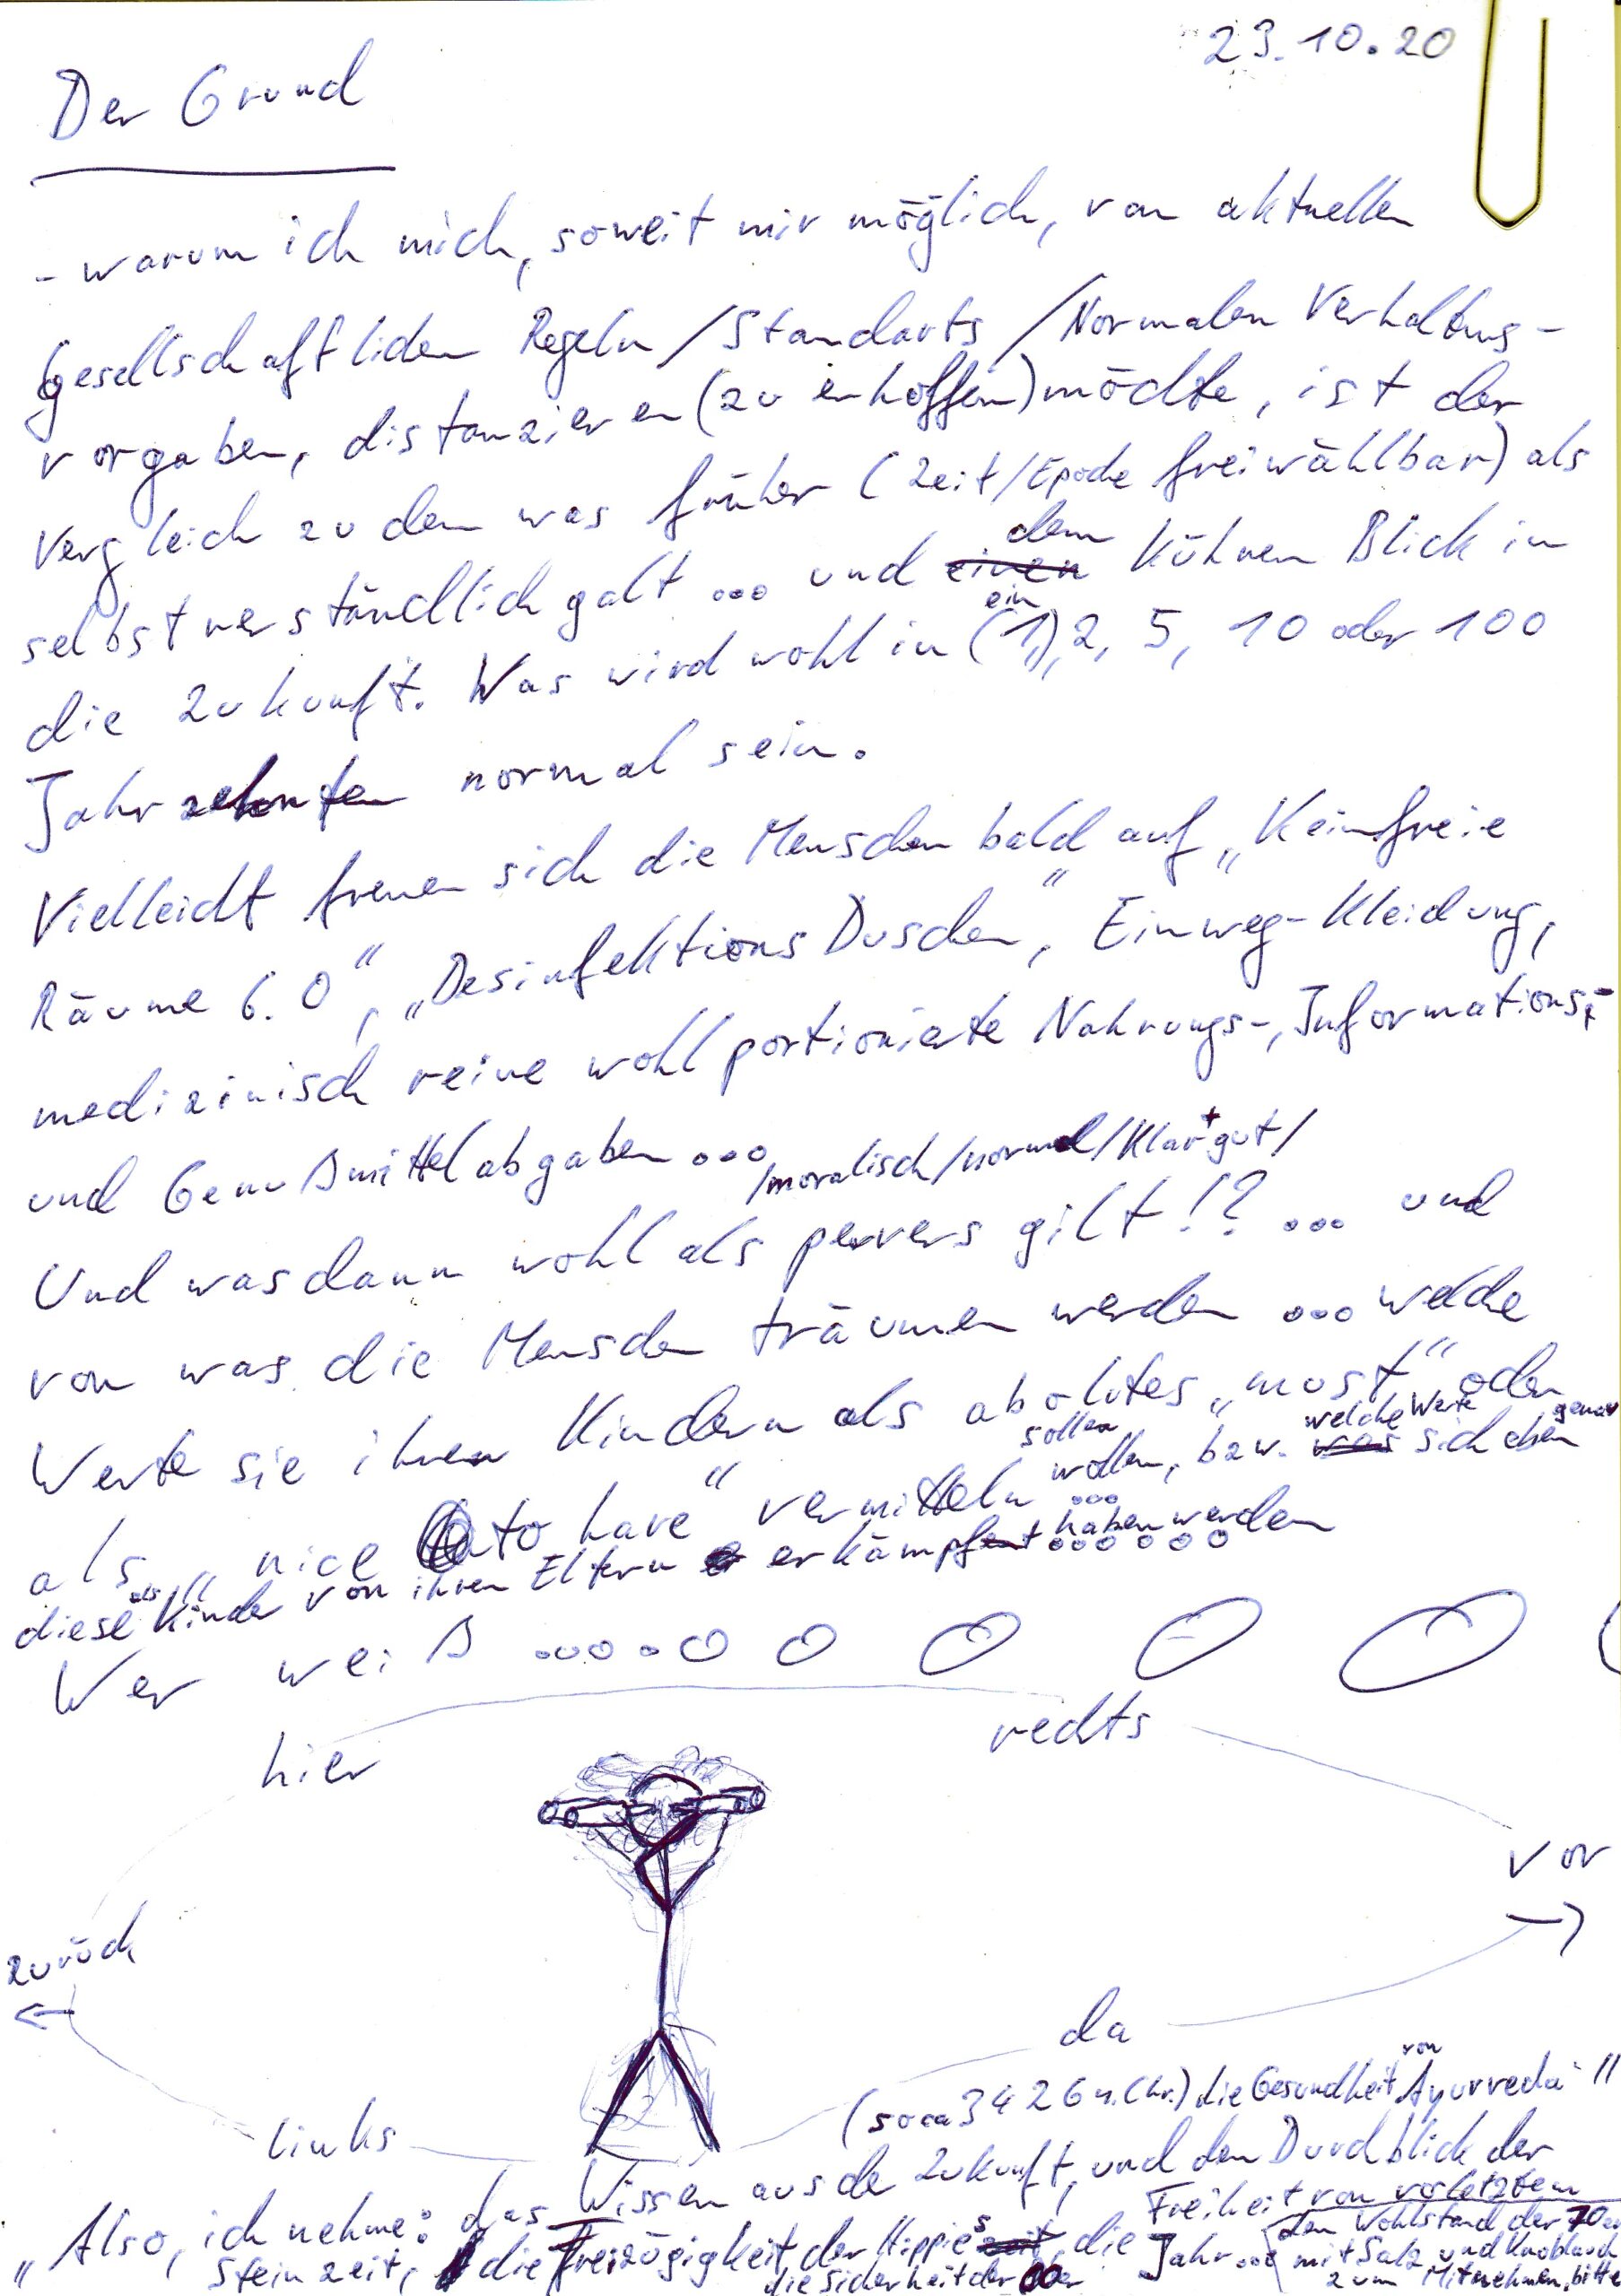 23.10.20
Der Grund
- warum ich mich, soweit mir möglich, von aktuellen
gesellschaftlichen Regeln/Standarts/Normalen Verhaltens-
vorgaben, distanzieren (zu erhoffen) möchte, ist der
Vergleich zu dem was früher (Zeit/Epoche freiwählbar) als
selbstverständlich galt ... und dem kühnen Blick in
die Zukunft. Was wird wohl in (1, ein), 2, 5, 10 oder 100
Jahrzehnten normal sein.
Vielleicht freuen sich die Menschen bald auf „Keimfreie
Räume 6.0", „Desinfektions Duschen", Einweg-Kleidung,
medizinisch reine wohlportionierte Nahrungs-, Informations-
und Genußmittelabgaben ...
/moralisch/normal/klar+gut/
Und was dann wohl als pervers gilt!? ... und
von was die Menschen träumen werden ... welche
Werte sie ihren Kindern als absolutes „must" oder
als „nice to have" vermitteln sollen wollen, bzw. welche Werte sich eben genau
diese Kinder von ihren Eltern erkämpft haben werden
Wer weiß ......
hier
rechts
vor
zurück
da
links
„Also, ich nehme: das Wissen aus der Zukunft, (so ca 3426 n. Chr.) die Gesundheit von Ayurveda und den Durchblick der
Steinzeit, die Freizügigkeit der Hippies, die Freiheit von vorletztem
Jahr... den Wohlstand der 70er
die Sicherheit der 00er
mit Salz und Knoblauch
zum Mitnehmen, bitte
"